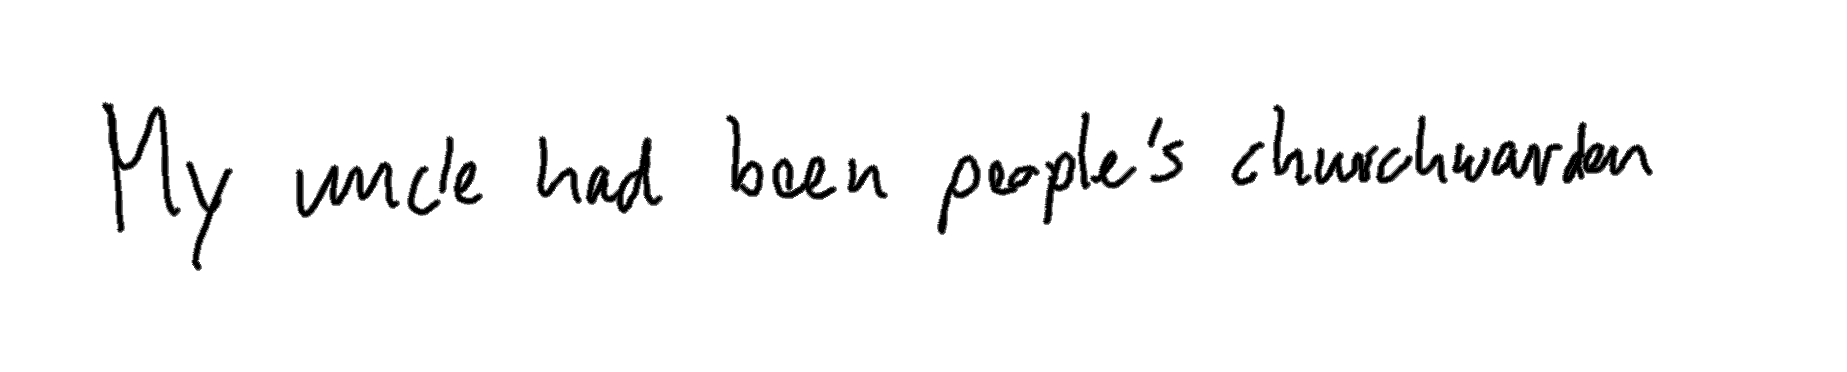 My uncle had been people's churchwarden